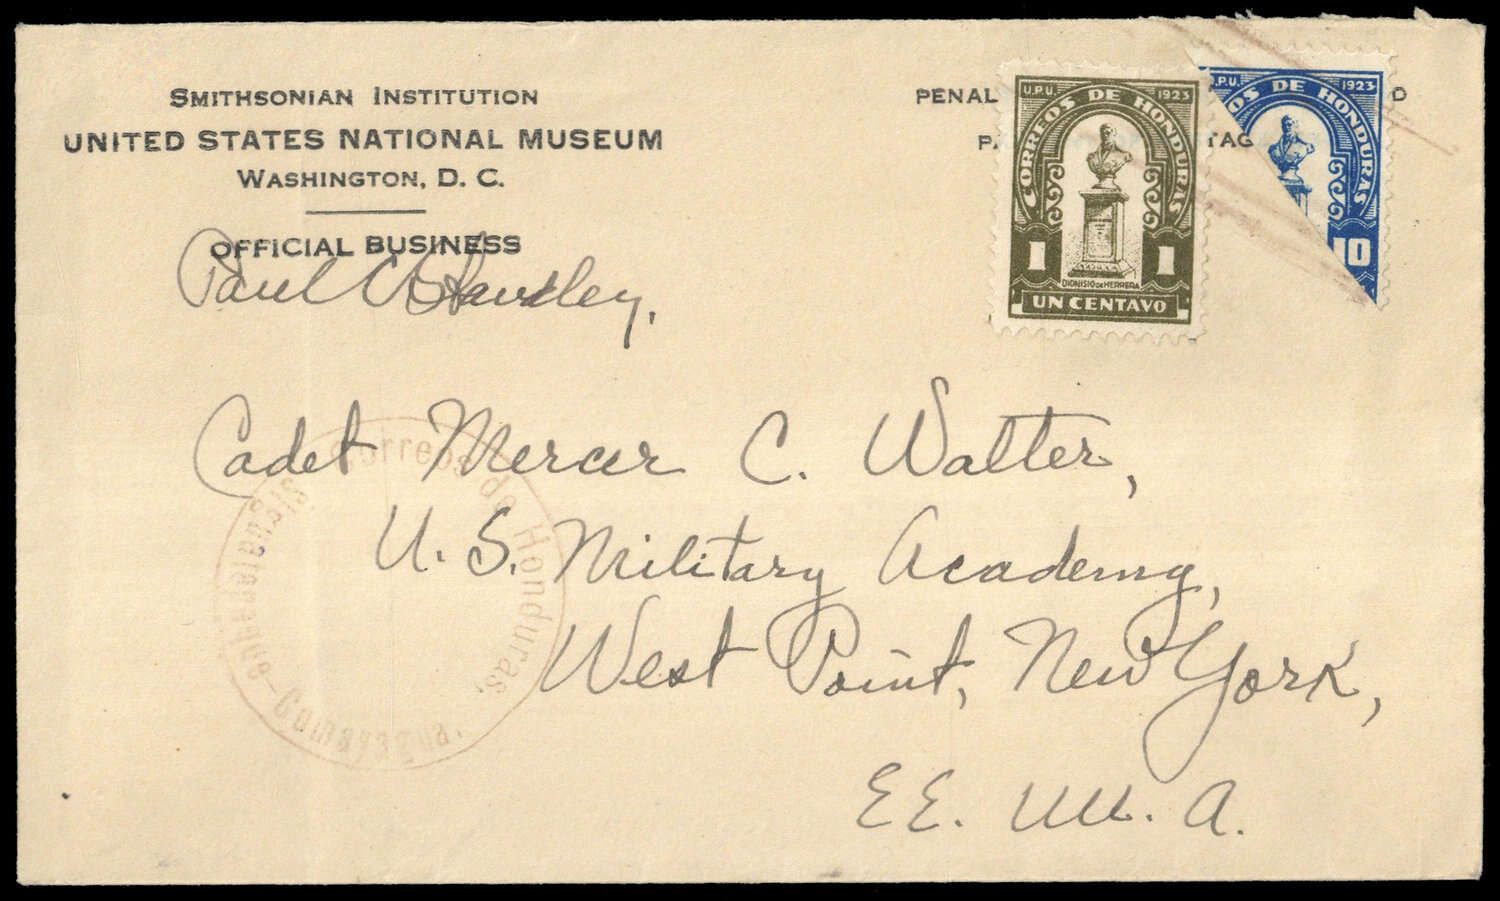 SMITHSONIAN INSTITUTION
UNITED STATES NATIONAL MUSEUM
WASHINGTON, D. C.
OFFICIAL BUSINESS
Paul C Standley,
PENAL
P
TAG
D
U.P.U. 1923
CORREOS DE HONDURAS
1 1
DIONISIO DE HERRERA
UN CENTAVO
.P.U. 1923
OS DE HONDURAS
10
Cadet Mercer C. Walter,
U. S. Military Academy,
West Point, New York,
EE. UU. A.
Correos de Honduras,
Siguatepeque-Comayagua.